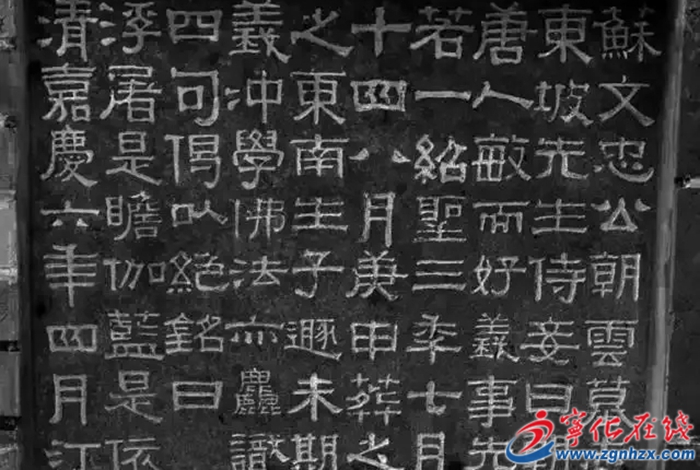 蘇文忠公朝雲墓
東坡先生侍妾曰
唐人敏而好義事先
若一紹聖三年七月
十四八月庚申葬之
之東南生子遯未期
義冲學佛法亦麤識
四句偈以絕銘曰
浮屠是瞻伽藍是依
清嘉慶六年四月汀
宁化在线
www.zgnhzx.com